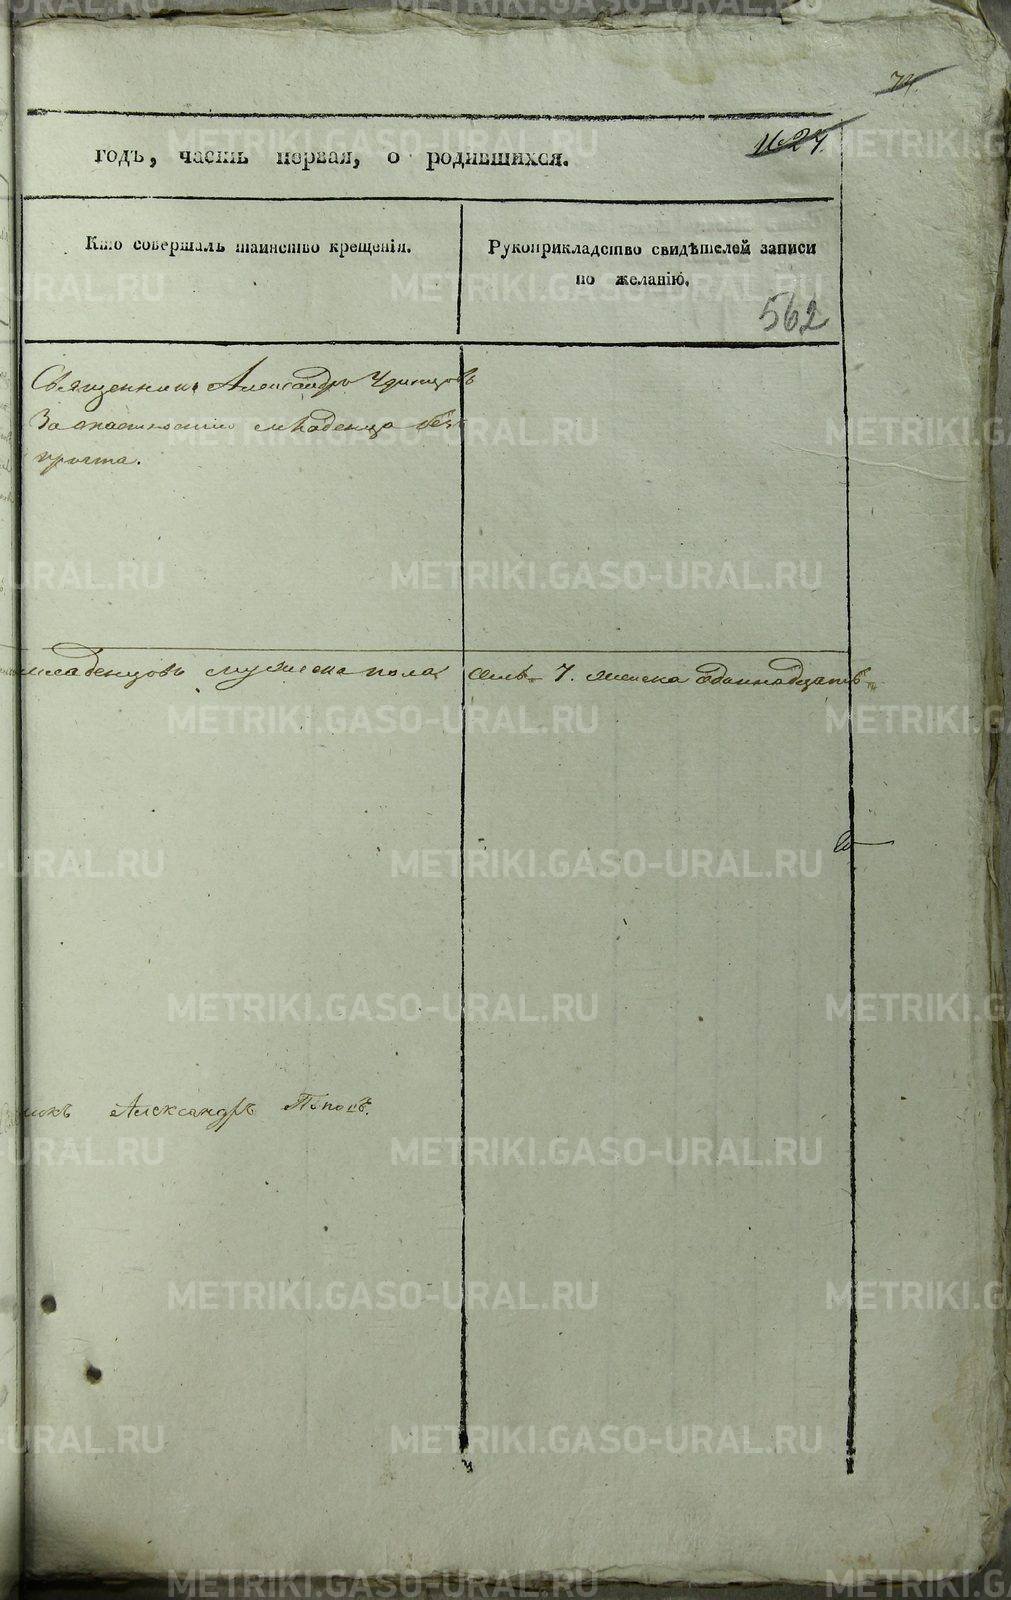 74.
1624.
годъ, часть первая, о родившихся.
Кто совершалъ таинство крещенія.
Рукоприкладство свидѣтелей записи
по желанію.
562
Священникъ Александръ Удинцовъ
За опасностію младенца безъ
причта.
младенцовъ мужеска пола седмь 7. женска одиннадцать
Александръ Поповъ.
METRIKI.GASO-URAL.RU